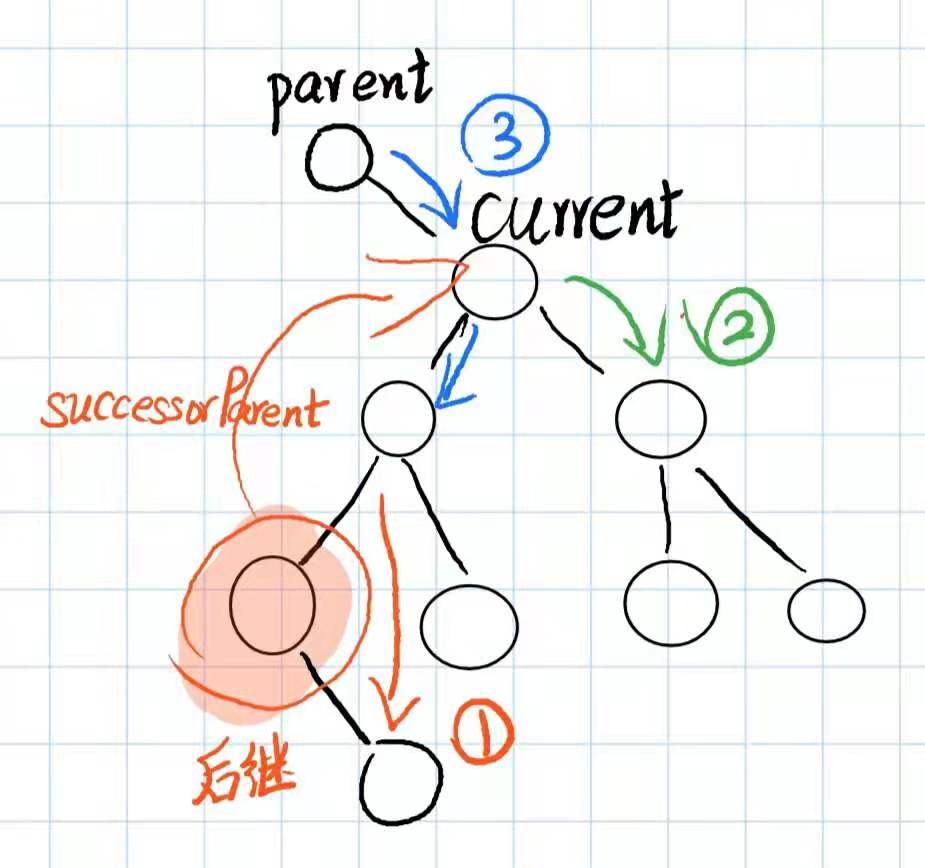 parent
③
current
②
successorParent
后继
①